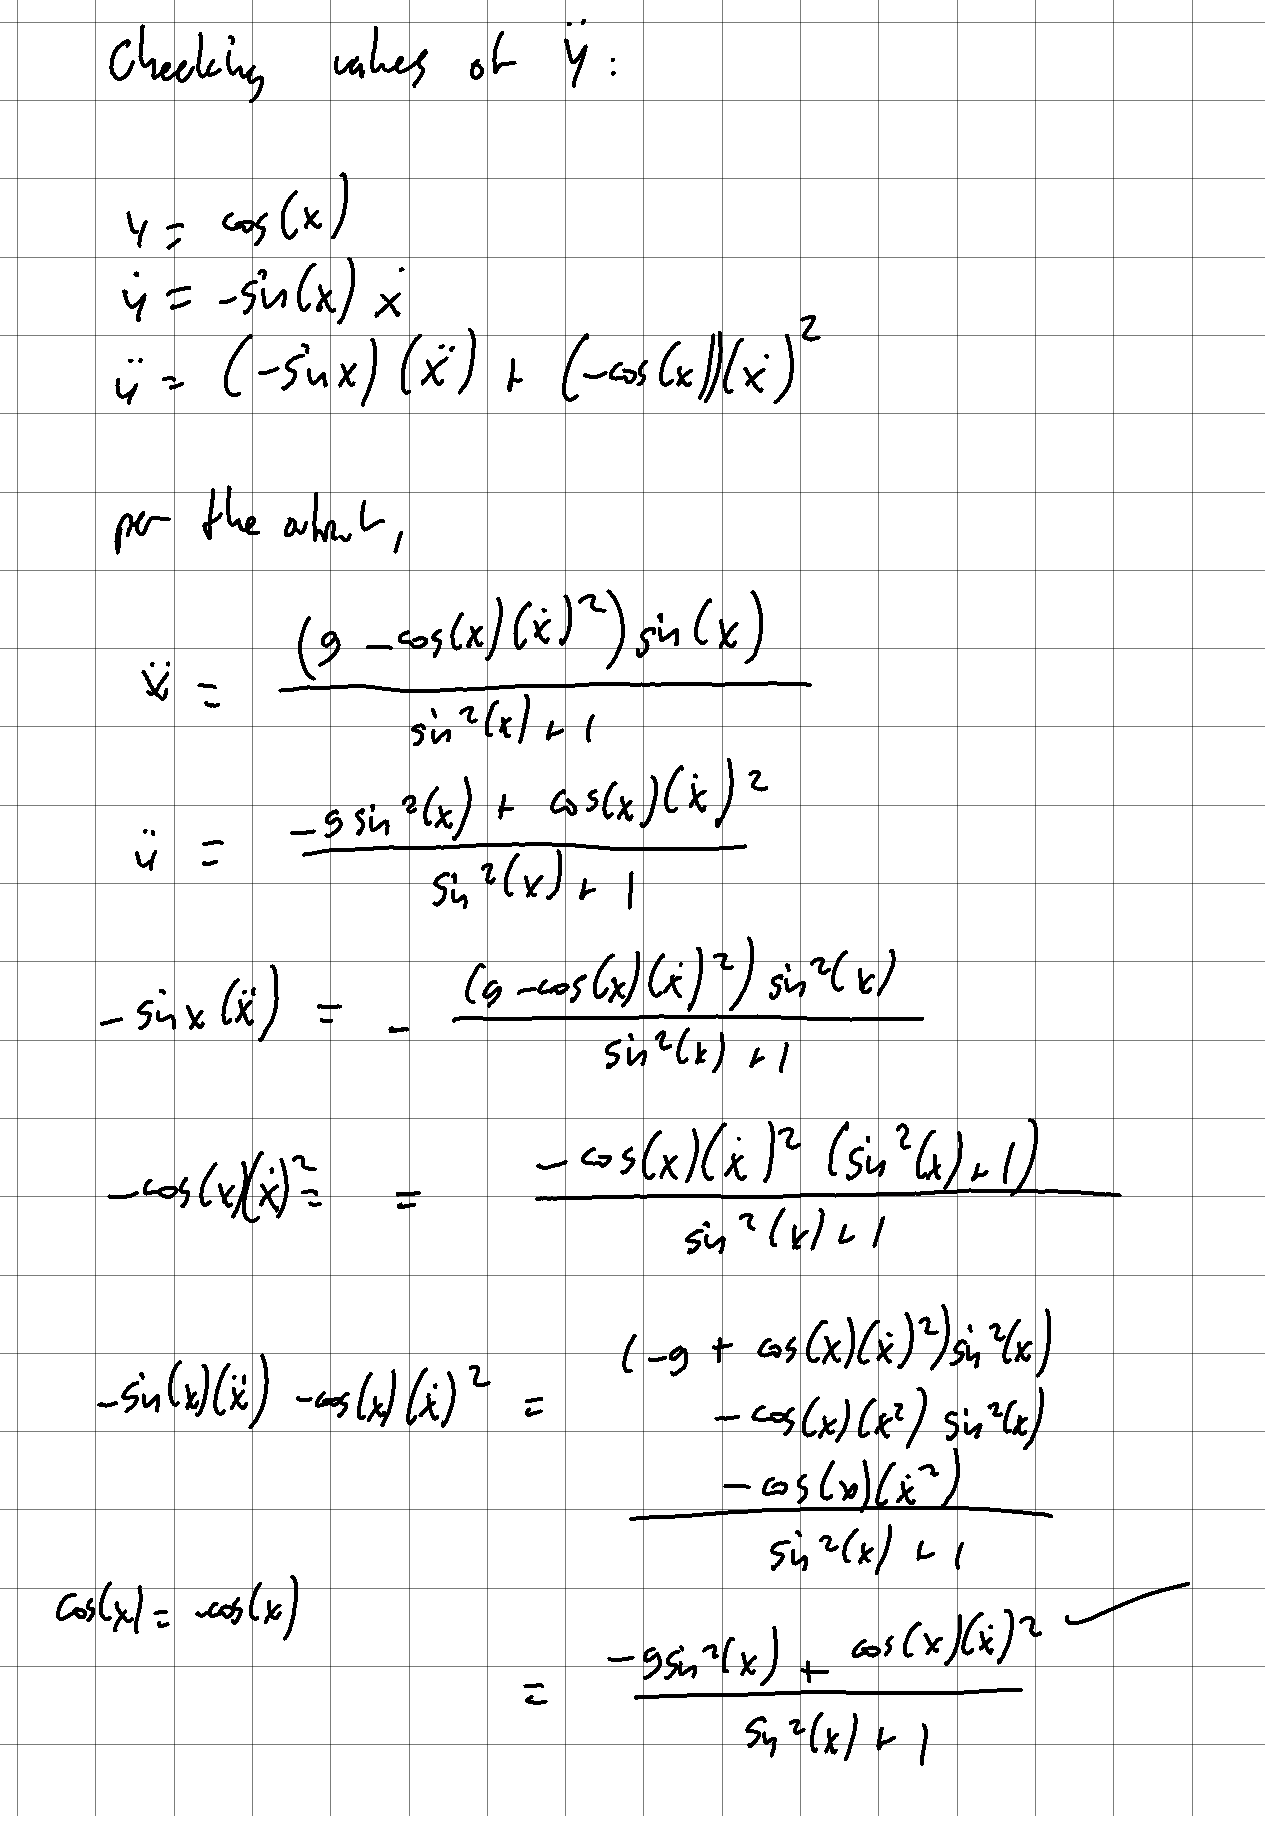 Checking values of ÿ :
y = cos(x)
ẏ = -sin(x) ẋ
ÿ = (-sin x) (ẍ) + (-cos(x))(ẋ)²
per the about,
ẍ = ((g - cos(x)(ẋ)²) sin(x)) / (sin²(x) + 1)
ÿ = (-g sin²(x) + cos(x)(ẋ)²) / (sin²(x) + 1)
- sin x (ẍ) = - ((g - cos(x)(ẋ)²) sin²(x)) / (sin²(x) + 1)
-cos(x)(ẋ)² = = (-cos(x)(ẋ)² (sin²(x) + 1)) / (sin²(x) + 1)
(-g + cos(x)(ẋ)²) sin²(x)
-sin(x)(ẍ) - cos(x)(ẋ)² = - cos(x)(x²) sin²(x)
- cos(x)(ẋ²)
sin²(x) + 1
cos(x) = -cos(x)
= (-g sin²(x) + cos(x)(ẋ)²) / (sin²(x) + 1) ✓